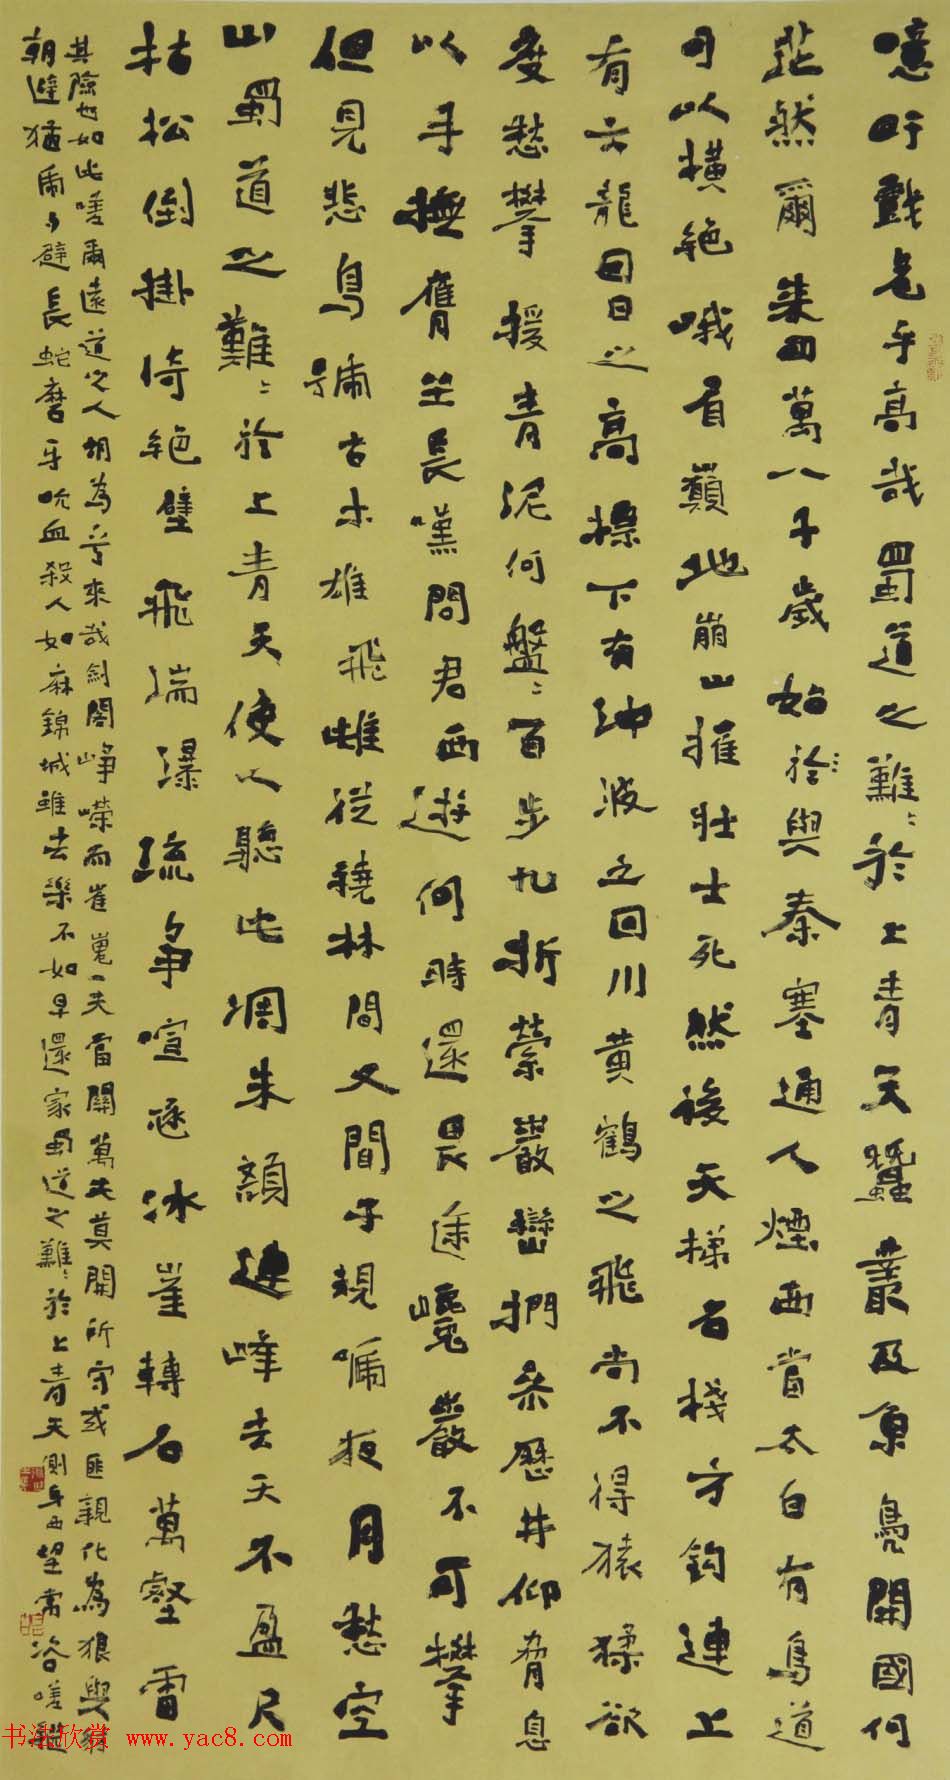 噫吁戲危乎高哉蜀道之難〻於上青天蠶叢及魚鳧開國何
茫然爾來四萬八千歲始於與秦塞通人煙西當太白有鳥道
可以橫絕峨眉巔地崩山摧壯士死然後天梯石棧方鉤連上
有六龍回日之高標下有沖波之回川黃鶴之飛尚不得猿猱欲
度愁攀援青泥何盤〻百步九折縈巖巒捫參歷井仰脅息
以手撫膺坐長嘆問君西遊何時還畏途巉巖不可攀
但見悲鳥號古木雄飛雌從繞林間又聞子規啼夜月愁空
山蜀道之難〻於上青天使人聽此凋朱顏連峰去天不盈尺
枯松倒掛倚絕壁飛湍瀑流爭喧豗冰崖轉石萬壑雷
其險也如此嗟爾遠道之人胡為乎來哉劍閣崢嶸而崔嵬一夫當關萬夫莫開所守或匪親化為狼與豺
朝避猛虎夕避長蛇磨牙吮血殺人如麻錦城雖去樂不如早還家蜀道之難〻於上青天側身西望常咨嗟
书法欣赏 www.yac8.com